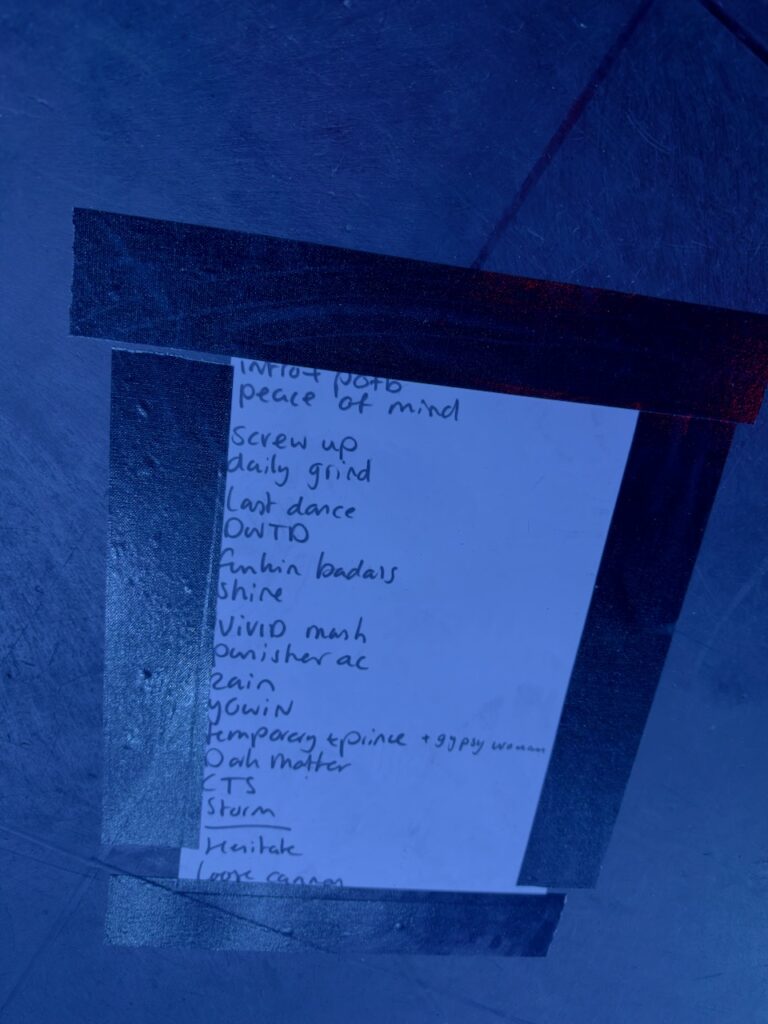 intro + potb
peace of mind
screw up
daily grind
last dance
DWTD
shine
VIVID mash
punisher ac
rain
YOWIN
temporary + prince + gypsy woman
Dark matter
CTS
Storm
Hesitate
loose cannon